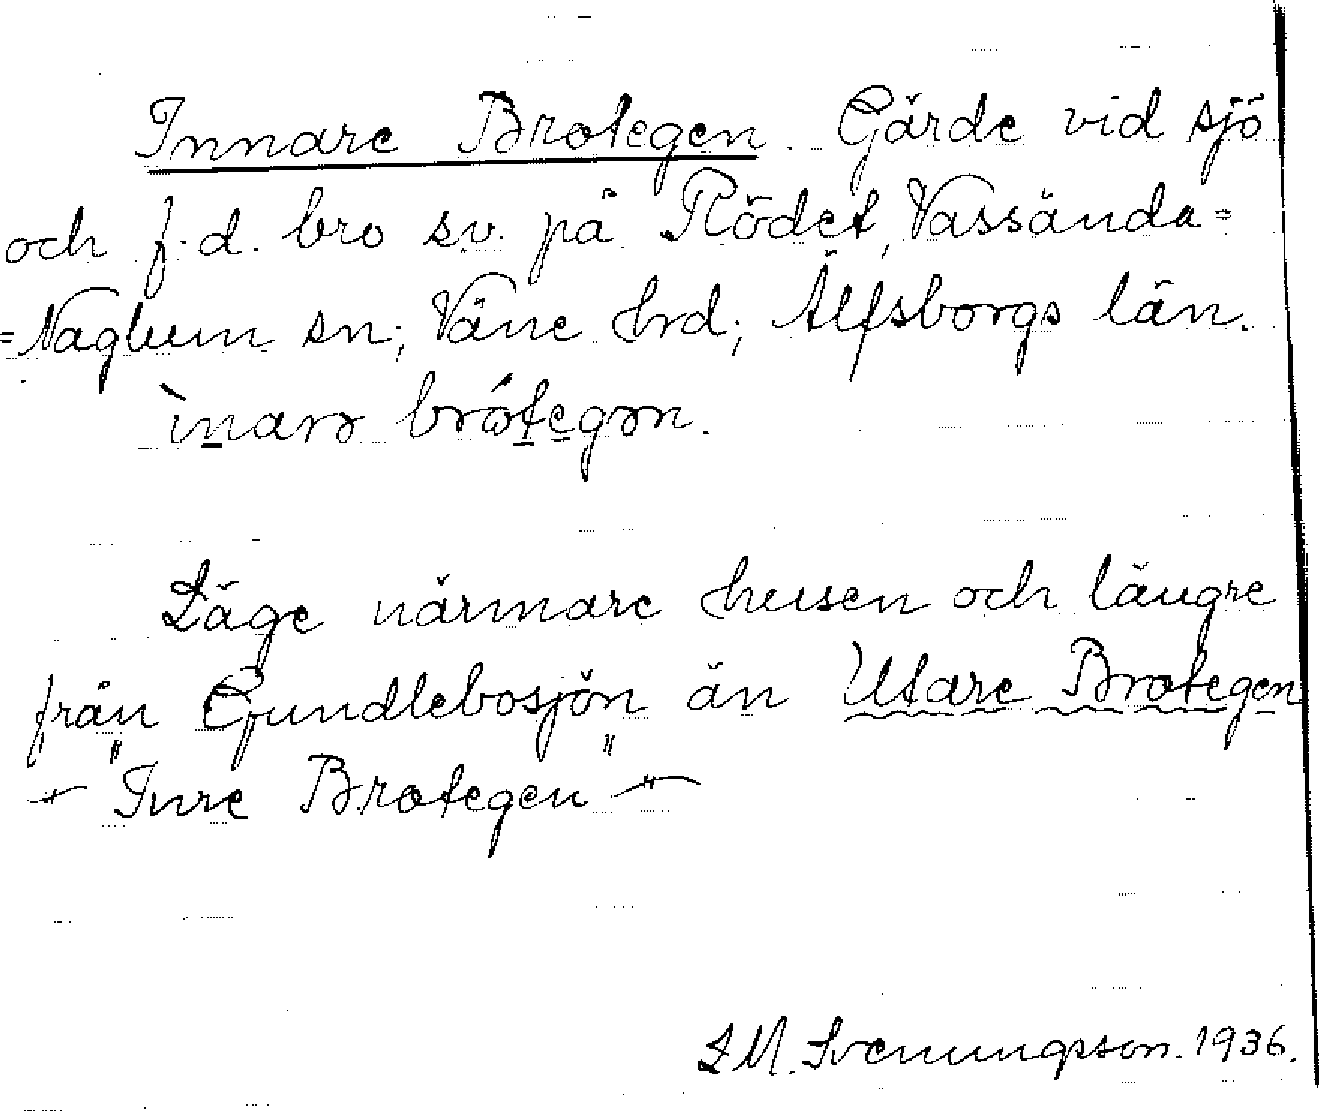 Innare Brotegen. Gärde vid sjö
och f.d. bro sv. på Rödet, Vassända=
=Naglum sn; Väne hrd; Älfsborgs län.
ìnarə brótegən.
Läge närmare husen och längre
från Gundlebosjön än Utare Brotegen
" Inre Brotegen "
S.M. Svenungsson. 1936.